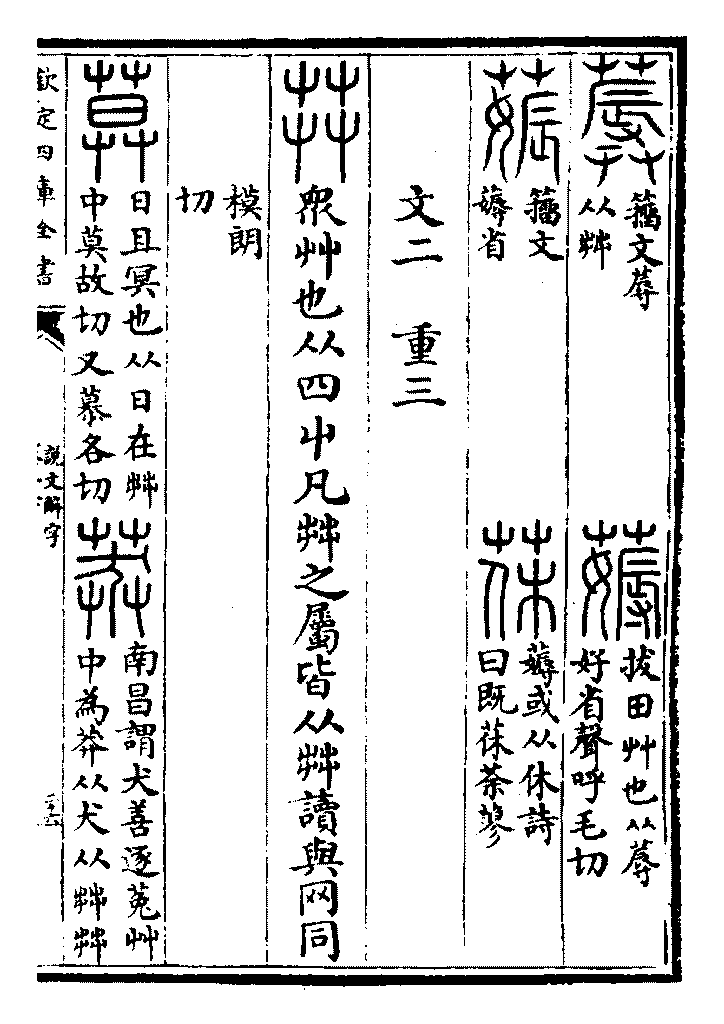 蓐
籀文蓐
从茻
薅
拔田艸也从蓐
好省聲呼毛切
薅
籀文
薅省
茠
薅或从休詩
曰既茠荼蓼
文二 重三
茻 眾艸也从四屮凡茻之屬皆从茻讀與网同
模朗
切
莫
日且冥也从日在茻
中莫故切又慕各切
莽
南昌謂犬善逐菟艸
中為莽从犬从茻茻
欽定四庫全書
說文解字